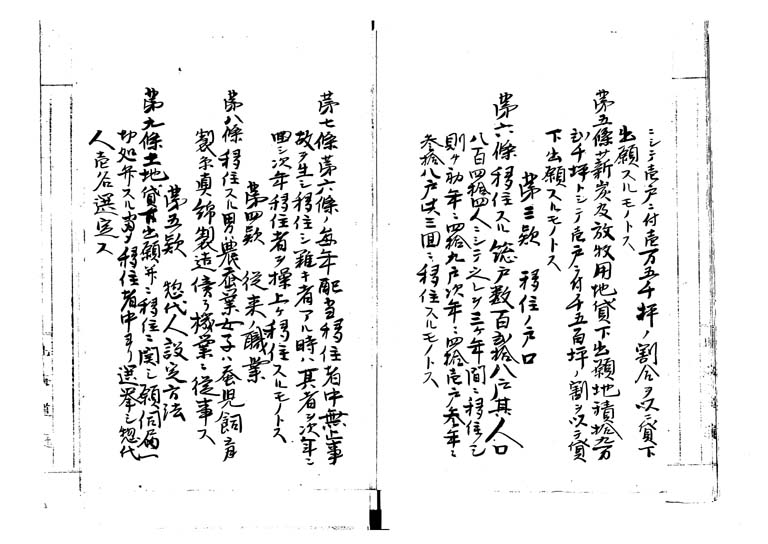 ニシテ壱戸ニ付壱万五千坪ノ割合ヲ以テ貸下
出願スルモノトス
第五條 薪炭及放牧用地貸下出願地積拾九万
弐千坪トシテ壱戸ニ付千五百坪ノ割ヲ以テ貸
下出願スルモノトス
第三欵 移住ノ戸口
第六條 移住スル総戸数百弐拾八戸其人口
八百四拾四人ニシテ之レヲ三ヶ年間ニ移住シ
則チ初年ニ四拾九戸次年ニ四拾壱戸参年ニ
参拾八戸丈三回ニ移住スルモノトス
第七條 第六條ノ毎年配当移住者中無止事
故ヲ生シ移住シ難キ者アル時ハ其者ヲ次年ニ
回シ次年移住者ヲ操上ケ移住スルモノトス
第四欵 従来ノ職業
第八條 移住スル男ハ農蚕業女子ハ蚕児飼育
製糸真綿製造傍ラ機業ニ従事ス
第五欵 惣代人設定方法
第九條 土地貸下出願并ニ移住ニ関シ願伺届一
切処弁スル為メ移住者中ヨリ選挙シ惣代
人壱名選定ス